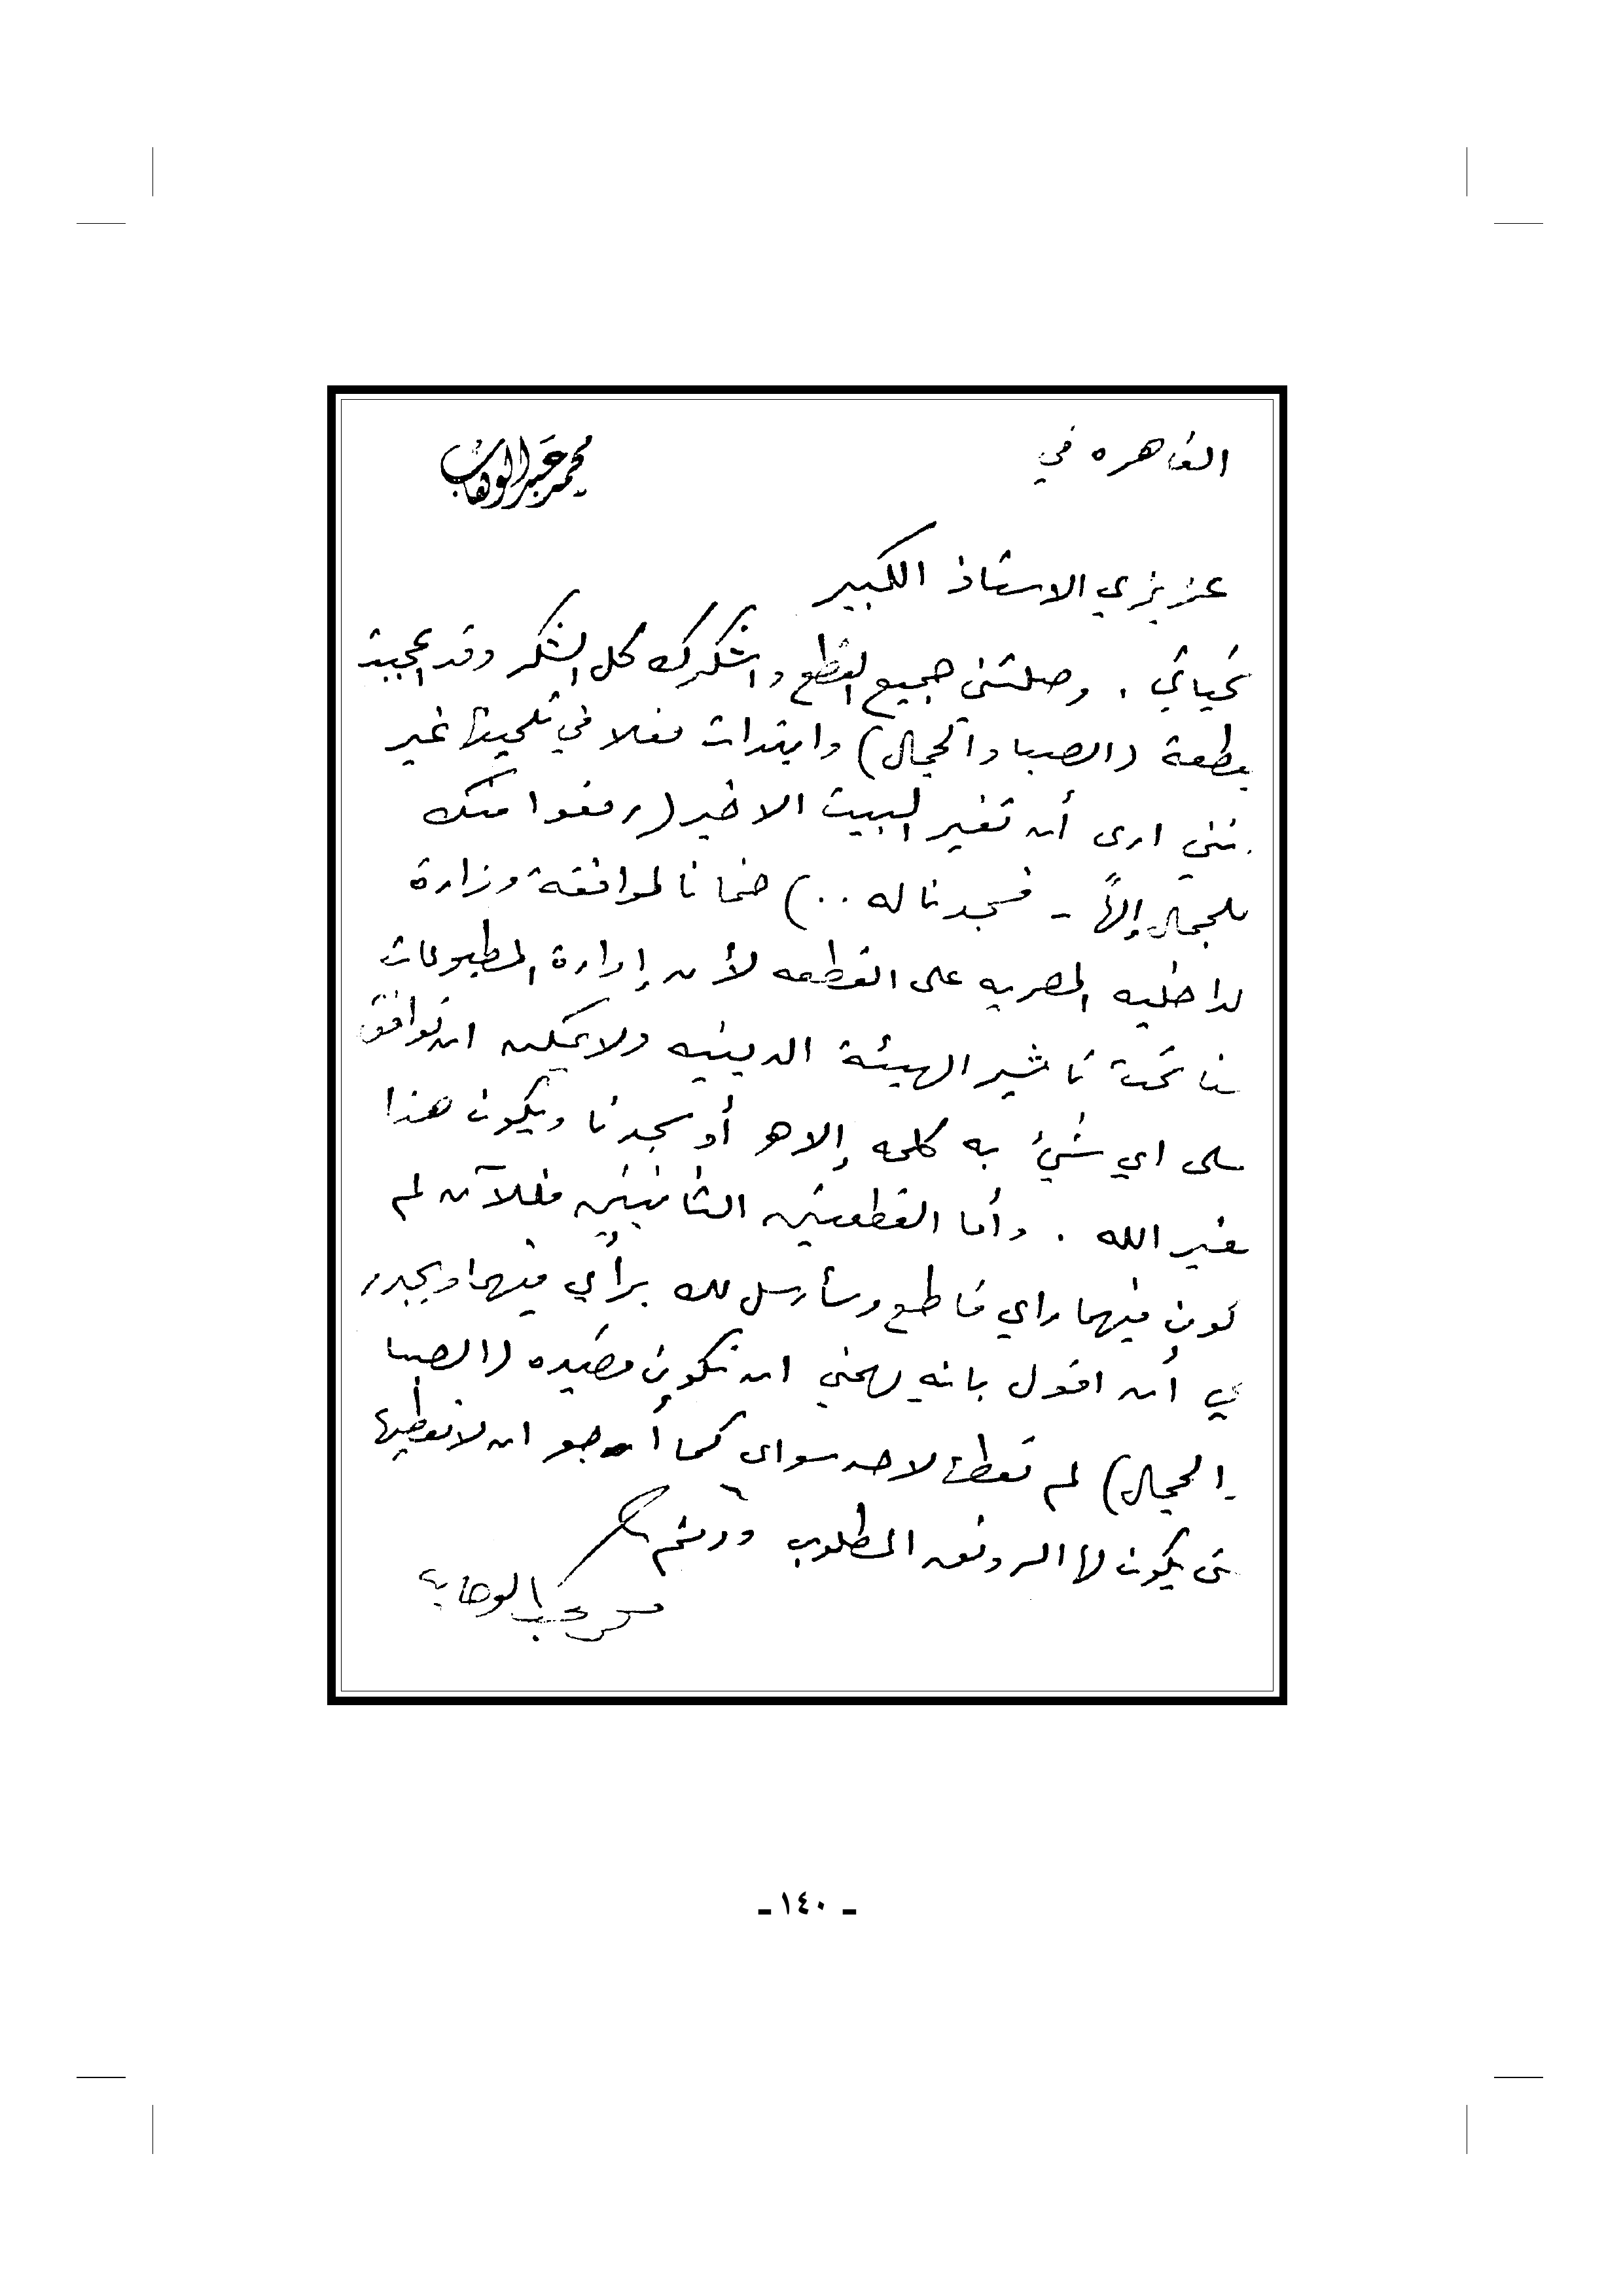 القاهره في
محمد عبد الوهاب
عزيزي الاستاذ الكبير
تحياتي . وصلتني جميع القطع واشكرك كل الشكر وقد اعجبت
بقطعة (الصبا والجمال) وابتدات فعلا في تلحينها غير
نني ارى أن تغير البيت الاخير (رفعوا منك
للجمال إلهاً - فسجدنا له ..) ضمانا لموافقة وزارة
لداخليه المصريه على القطعه لأن إدارة المطبوعات
نا تحت تاثير الهيئة الدينيه ولا يمكن ان توافق
على اي شيء به كلمه إلاهو أو سجدنا ويكون هذا
غير الله . وأما القطعتين الثانيتين فللآن لم
كون فيهما راي قاطع وسأرسل لك برأي فيهما ويجدر
ي أن اقول بانه يهمني ان تكون قصيده (الصبا
والجمال) لم تعط لاحد سواى كما أرجو ان لا تعطيها
تى يكون لها الرونق المطلوب ودمتم
محمد عبد الوهاب
ـ ١٤٠ ـ